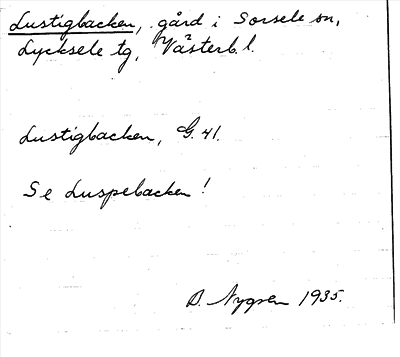 Lustigbacken, gård i Sorsele sn,
Lycksele tg, Västerb. l.
Lustigbacken, G. 41.
Se Luspebacken!
D. Nygren 1935.